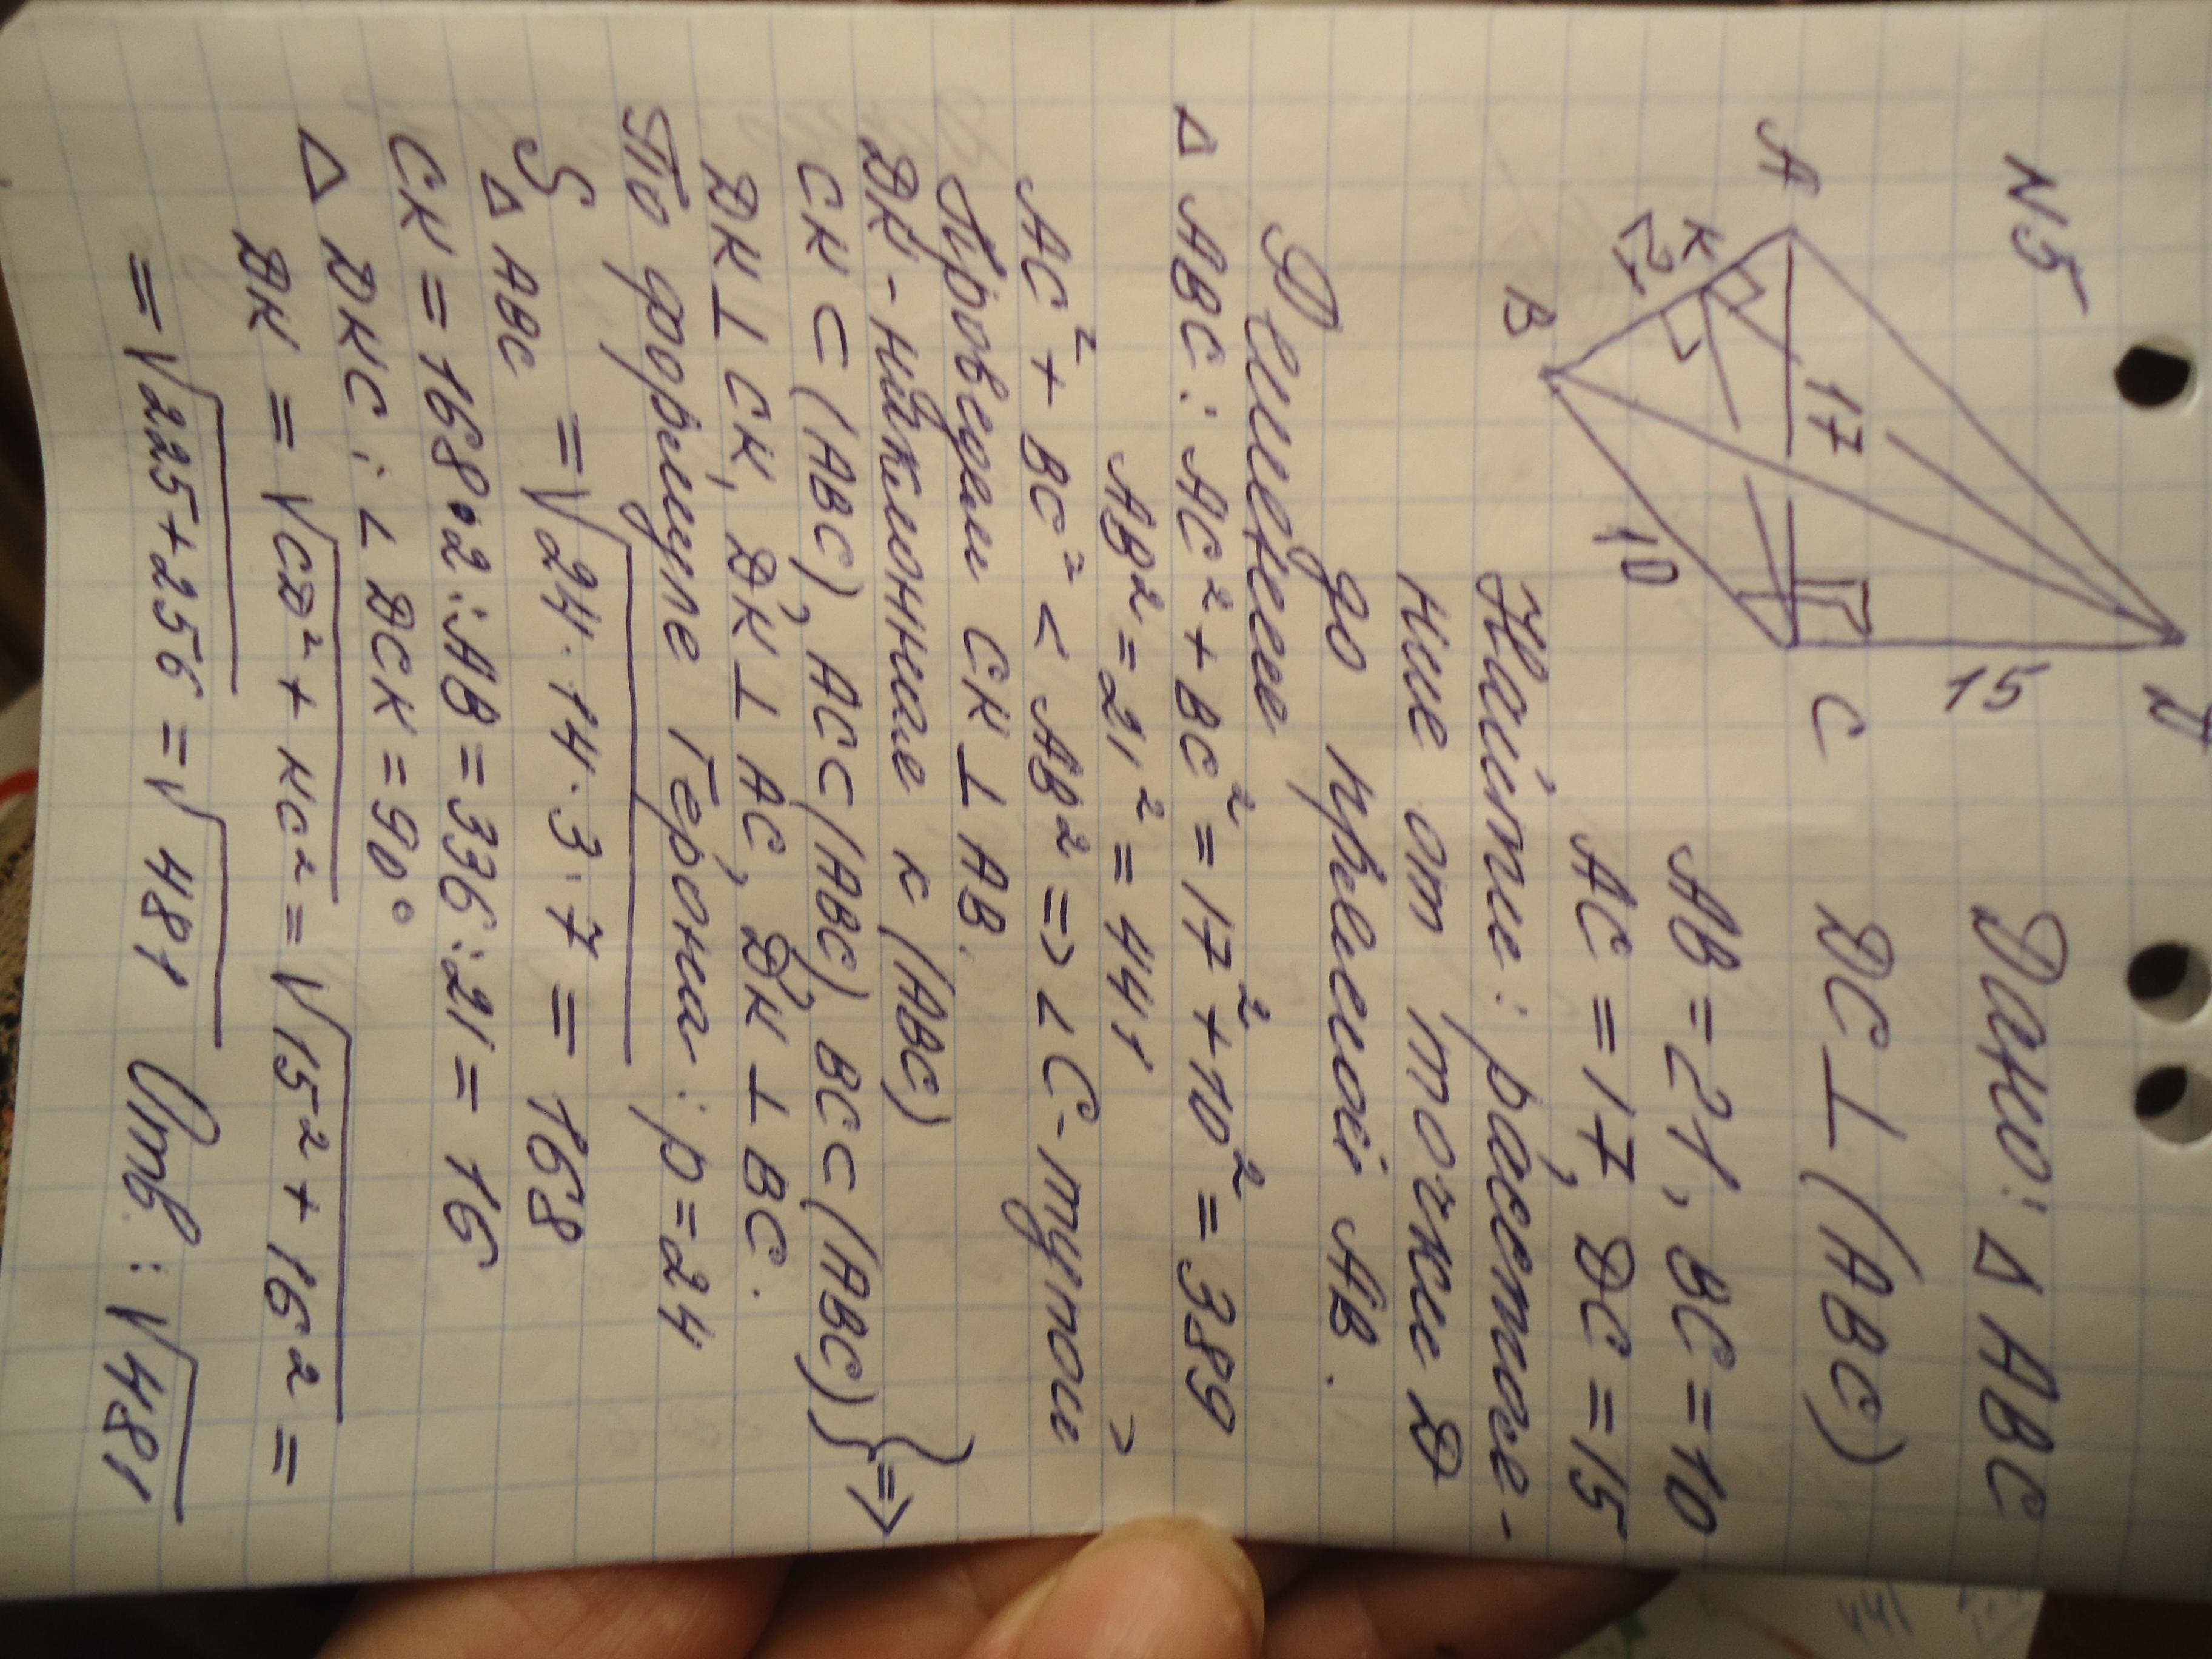 N5
Дано: △ ABC
DC ⊥ (ABC)
AB = 21, BC = 10
AC = 17, DC = 15
Найти: расстоя-
ние от точки D
до прямой AB.
A
K
21
B
17
10
C
15
D
Решение
△ ABC: AC² + BC² = 17² + 10² = 389
AB² = 21² = 441
AC² + BC² < AB² => ∠ C - тупой
Проведем CK ⊥ AB.
DK - наклонная к (ABC)
CK ⊂ (ABC), AC ⊂ (ABC), BC ⊂ (ABC) } =>
DK ⊥ CK, DK ⊥ AC, DK ⊥ BC.
По формуле Герона: p = 24
S △ ABC = √24 · 14 · 3 · 7 = 168
CK = 168 · 2 : AB = 336 : 21 = 16
△ DKC: ∠ DCK = 90°
DK = √CD² + KC² = √15² + 16² =
= √225 + 256 = √481 Отв: √481
441